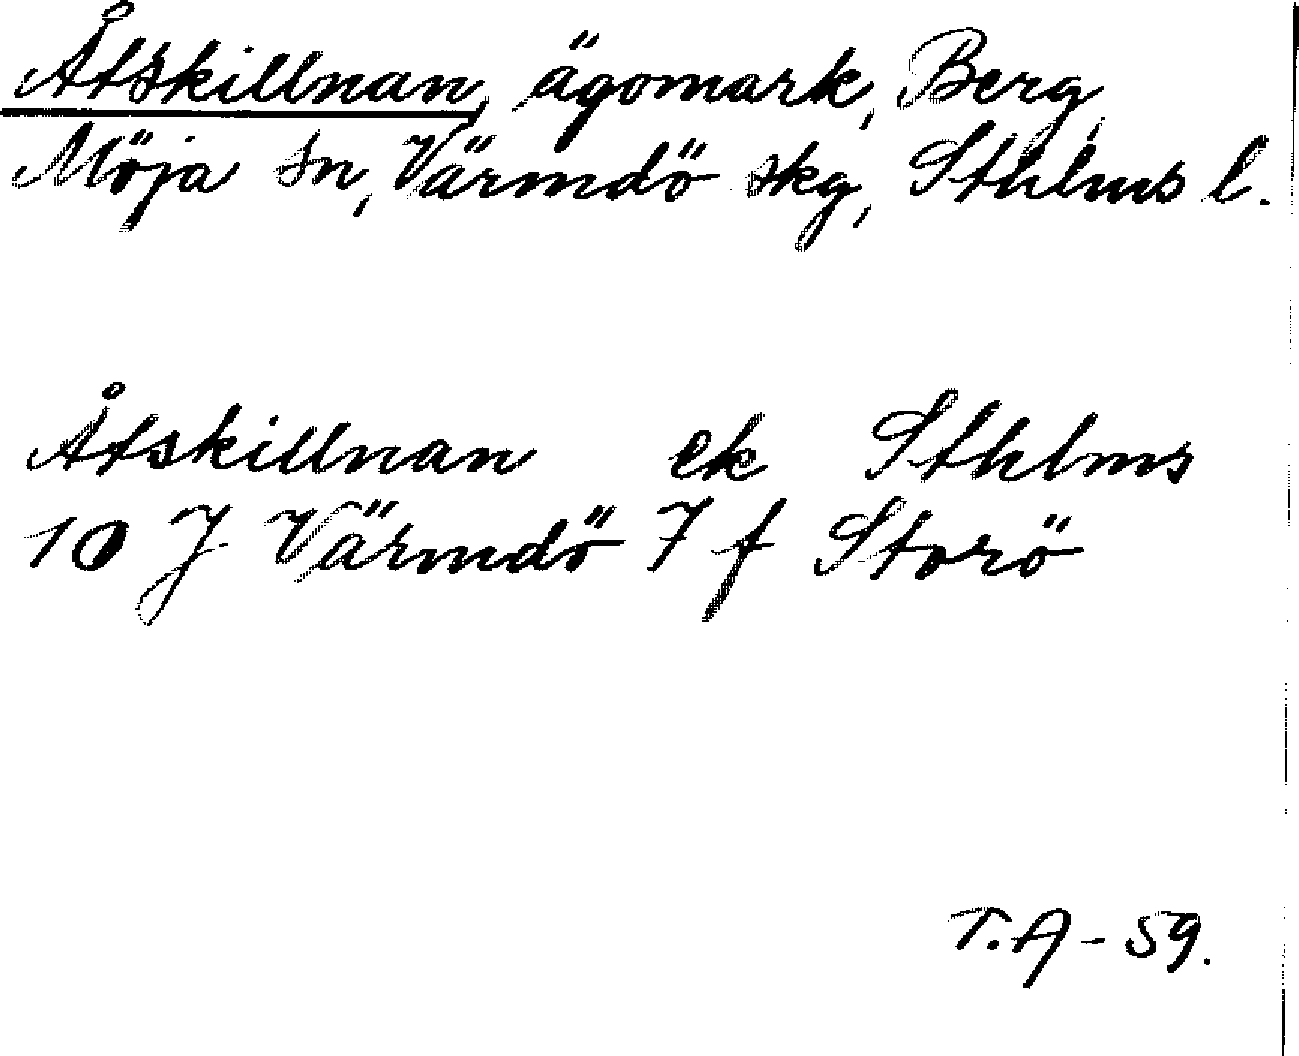 Åtskillnan, ägomark, Berg,
Möja sn, Värmdö skg, Sthlms l.
Åtskillnan ek Sthlms
10 J Värmdö 7 f Storö
T.A - 59.